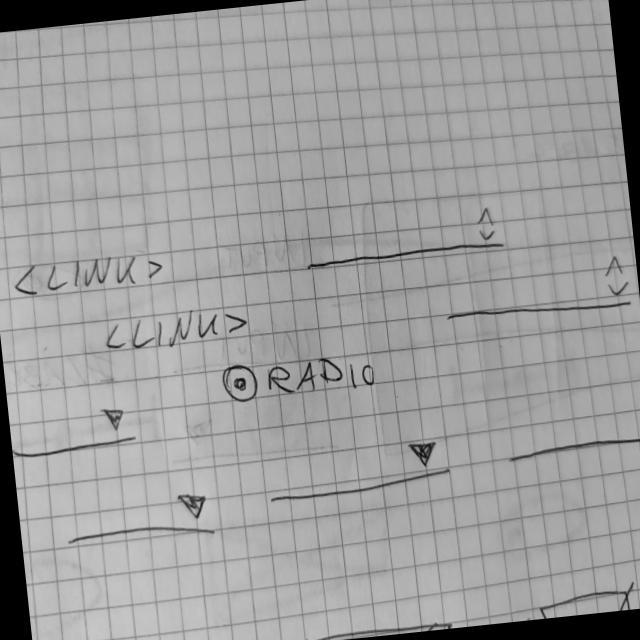 <LINK>
<LINK>
RADIO